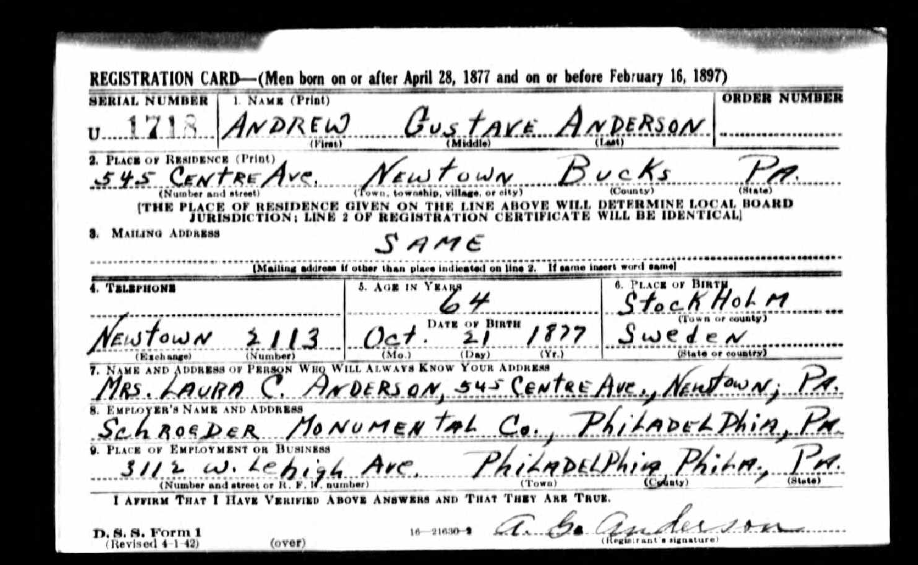 REGISTRATION CARD—(Men born on or after April 28, 1877 and on or before February 16, 1897)
SERIAL NUMBER 1. NAME (Print) ORDER NUMBER
U 1718 ANDREW GUSTAVE ANDERSON
(First) (Middle) (Last)
2. PLACE OF RESIDENCE (Print)
545 CENTRE AVE. NEWTOWN BUCKS PA.
(Number and street) (Town, township, village, or city) (County) (State)
[THE PLACE OF RESIDENCE GIVEN ON THE LINE ABOVE WILL DETERMINE LOCAL BOARD
JURISDICTION; LINE 2 OF REGISTRATION CERTIFICATE WILL BE IDENTICAL]
3. MAILING ADDRESS
SAME
[Mailing address if other than place indicated on line 2. If same insert word same]
4. TELEPHONE 5. AGE IN YEARS 6. PLACE OF BIRTH
64 STOCKHOLM
(Town or county)
DATE OF BIRTH
NEWTOWN 2113 Oct. 21 1877 SWEDEN
(Exchange) (Number) (Mo.) (Day) (Yr.) (State or country)
7. NAME AND ADDRESS OF PERSON WHO WILL ALWAYS KNOW YOUR ADDRESS
MRS. LAURA C. ANDERSON, 545 CENTRE AVE., NEWTOWN, PA.
8. EMPLOYER'S NAME AND ADDRESS
SCHROEDER MONUMENTAL Co., PHILADELPHIA, PA.
9. PLACE OF EMPLOYMENT OR BUSINESS
3112 W. Lehigh Ave. PHILADELPHIA PHILA., PA.
(Number and street or R. F. D. number) (Town) (County) (State)
I AFFIRM THAT I HAVE VERIFIED ABOVE ANSWERS AND THAT THEY ARE TRUE.
D. S. S. Form 1 16—21630-2 A. G. Anderson
(Revised 4-1-42) (over) (Registrant's signature)